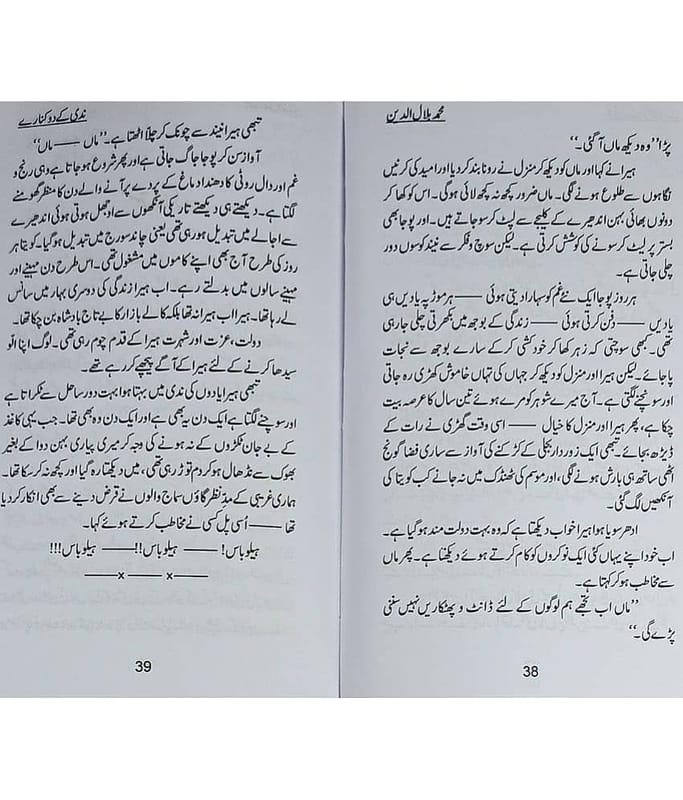 محمد بلال الدین
پڑا ”وہ دیکھ ماں آ گئی۔“
ہیرا نے کہا اور ماں کو دیکھ کر منزل نے رونا بند کر دیا اور امید کی کرنیں
نگاہوں سے طلوع ہونے لگی۔ ماں ضرور کچھ نہ کچھ لائی ہوگی۔ اس کو کھا کر
دونوں بھائی بہن اندھیرے کے کلیجے سے لپٹ کر سو جاتے ہیں۔ اور پوجا بھی
بستر پر لیٹ کر سونے کی کوشش کرتی ہے۔ لیکن سوچ و فکر سے نیند کوسوں دور
چلی جاتی ہے۔
ہر روز پوجا ایک نئے غم کو سہارا دیتی ہوئی —— ہر موڑ پہ یادیں ہی
یادیں —— دفن کرتی ہوئی —— زندگی کے بوجھ میں بکھرتی چلی جا رہی
تھی۔ کبھی سوچتی کہ زہر کھا کر خودکشی کر کے سارے بوجھ سے نجات
پا جائے۔ لیکن ہیرا اور منزل کو دیکھ کر جہاں کی تہاں خاموش کھڑی رہ جاتی
اور سوچنے لگتی ہے۔ آج میرے شوہر کو مرے ہوئے تین سال کا عرصہ بیت
چکا ہے، پھر ہیرا اور منزل کا خیال —— اسی وقت گھڑی نے رات کے
ڈیڑھ بجائے۔ تبھی ایک زوردار بجلی کے کڑکنے کی آواز سے ساری فضا گونج
اٹھی ساتھ ہی بارش ہونے لگی، اور موسم کی ٹھنڈک میں نہ جانے کب کویتا کی
آنکھیں لگ گئی۔
ادھر سویا ہوا ہیرا خواب دیکھتا ہے کہ وہ بہت دولت مند ہو گیا ہے۔
اب خود اپنے یہاں کئی ایک نوکروں کو کام کرتے ہوئے دیکھتا ہے۔ پھر ماں
سے مخاطب ہو کر کہتا ہے۔
”ماں اب تجھے ہم لوگوں کے لئے ڈانٹ و پھٹکاریں نہیں سننی
پڑے گی۔“
38
ندی کے دو کنارے
تبھی ہیرا نیند سے چونک کر چلا اٹھتا ہے۔ ”ماں —— ماں“
آواز سن کر پوجا جاگ جاتی ہے اور پھر شروع ہو جاتا وہی رنج و
غم اور دال روٹی کا دھندا دماغ کے پردے پر آنے والے دن کا منظر گھومنے
لگتا ہے۔ دیکھتے ہی دیکھتے تاریکی آنکھوں سے اوجھل ہوتی ہوئی اندھیرے
سے اجالے میں تبدیل ہو رہی تھی یعنی چاند سورج میں تبدیل ہو گیا۔ کویتا ہر
روز کی طرح آج بھی اپنے کاموں میں مشغول تھی۔ اس طرح دن مہینے اور
مہینے سالوں میں بدلتے رہے۔ اب ہیرا زندگی کی دوسری بہار میں سانس
لے رہا تھا۔ ہیرا اب ہیرا نہ تھا بلکہ کالے بازار کا بے تاج بادشاہ بن چکا تھا۔
دولت، عزت اور شہرت ہیرا کے قدم چوم رہی تھی۔ لوگ اپنا الّو
سیدھا کرنے کے لئے ہیرا کے آگے پیچھے کر رہے تھے۔
تبھی ہیرا یادوں کی ندی میں بہتا ہوا بہت دور ساحل سے ٹکراتا ہے
اور سوچنے لگتا ہے ایک دن یہ بھی ہے اور ایک دن وہ بھی تھا۔ جب یہی کاغذ
کے بے جان ٹکڑوں کے نہ ہونے کی وجہ کر میری پیاری بہن دوا کے بغیر
بھوک سے نڈھال ہو کر دم توڑ رہی تھی، میں دیکھتا رہ گیا اور کچھ نہ کر سکا تھا۔
ہماری غریبی کے مدِّنظر گاؤں سماج والوں نے قرض دینے سے بھی انکار کر دیا
تھا —— اُسی پل کسی نے مخاطب کرتے ہوئے کہا۔
ہیلو باس! —— ہیلو باس!! —— ہیلو باس!!!
——×——×——
39